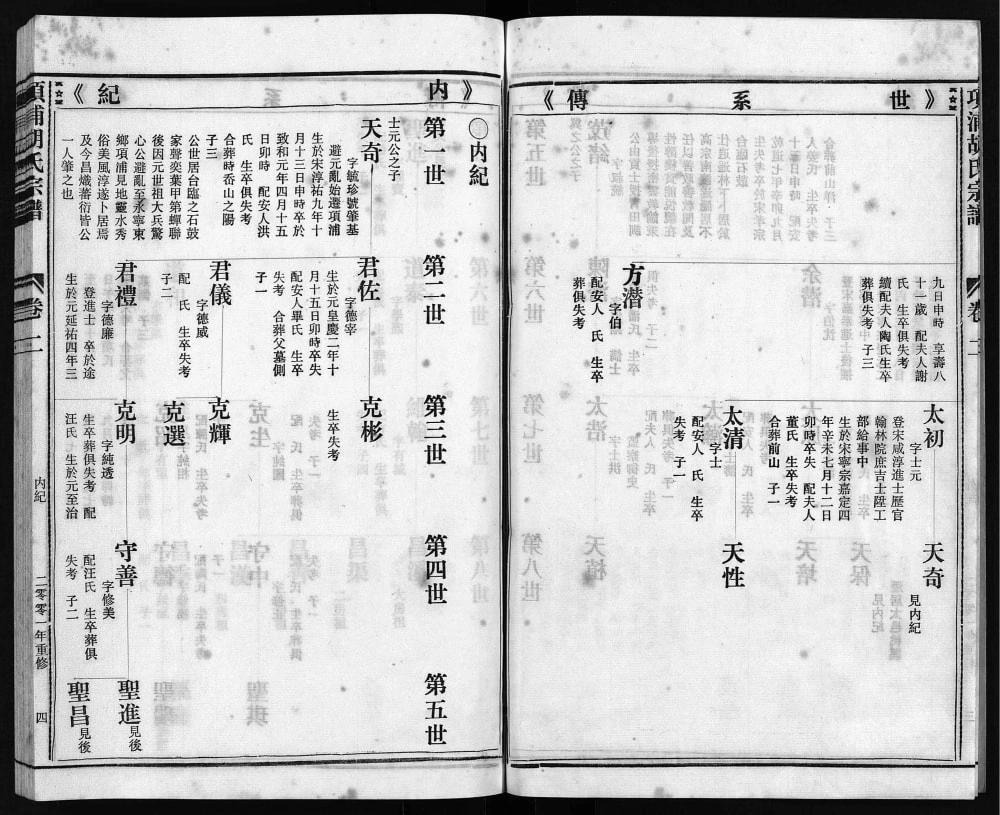 《世系傳》
項浦胡氏宗譜
卷二
九日申時 享壽八
十一歲 配夫人謝
氏 生卒俱失考
續配夫人陶氏生卒
葬俱失考 子三
太初
字士元
登宋咸淳進士歷官
翰林院庶吉士陞工
部給事中
生於宋寧宗嘉定四
年辛未七月十二日
卯時卒失 配夫人
董氏 生卒失考
合葬前山 子一
天奇
見內紀
方潛
字伯
配安人 氏 生卒
葬俱失考
太清
字士
配安人 氏 生卒
失考 子一
天性
《內紀
內紀
第一世
第二世
第三世
第四世
第五世
士元公之子
天奇
字毓珍號肇基
避元亂始遷項浦
生於宋淳祐九年十
月十三日申時卒於
致和元年四月十五
日卯時 配安人洪
氏 生卒俱失考
合葬時岙山之陽
子三
公世居台臨之石鼓
家聲奕葉甲第蟬聯
後因元世祖大兵驚
心公避亂至永寧東
鄉項浦見地靈水秀
俗美風淳遂卜居焉
及今昌熾蕃衍皆公
一人肇之也
君佐
字德宰
生於元皇慶二年十
月十五日卯時卒失
配安人畢氏 生卒
失考 合葬父墓側
子一
克彬
生卒失考
君儀
字德威
配 氏 生卒失考
子二
克輝
克選
君禮
字德廉
登進士 卒於途
生於元延祐四年三
克明
字純透
生卒葬俱失考 配
汪氏 生於元至治
守善
字修美
配汪氏 生卒葬俱
失考 子二
聖進見後
聖昌見後
項浦胡氏宗譜
卷二
內紀
二零零一年重修
四